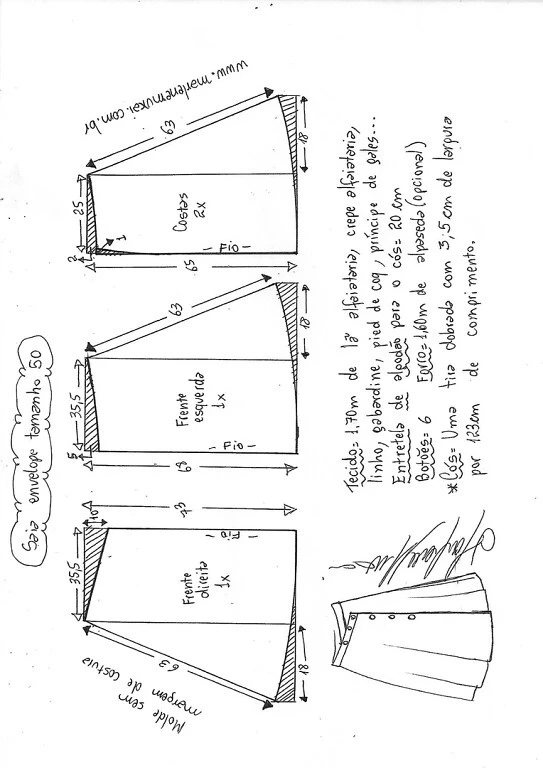 Saia envelope tamanho 50
www.marlenemukai.com.br
25
63
2
1
Costas
2x
- Fio -
18
65
35,5
63
5
Frente
esquerda
1x
- Fio -
18
68
73
35,5
10
Fio
Frente
direita
1x
63
18
Molde sem
margem de costura
Tecido= 1,70m de lã alfaiataria, crepe alfaiataria,
linho, gabardine, pied de coq, príncipe de gales...
Entretela de algodão para o cós= 20 cm
Botões= 6 Forro= 1,60m de alpaseda (opcional)
*Cós= Uma tira dobrada com 3,5cm de largura
por 123cm de comprimento.